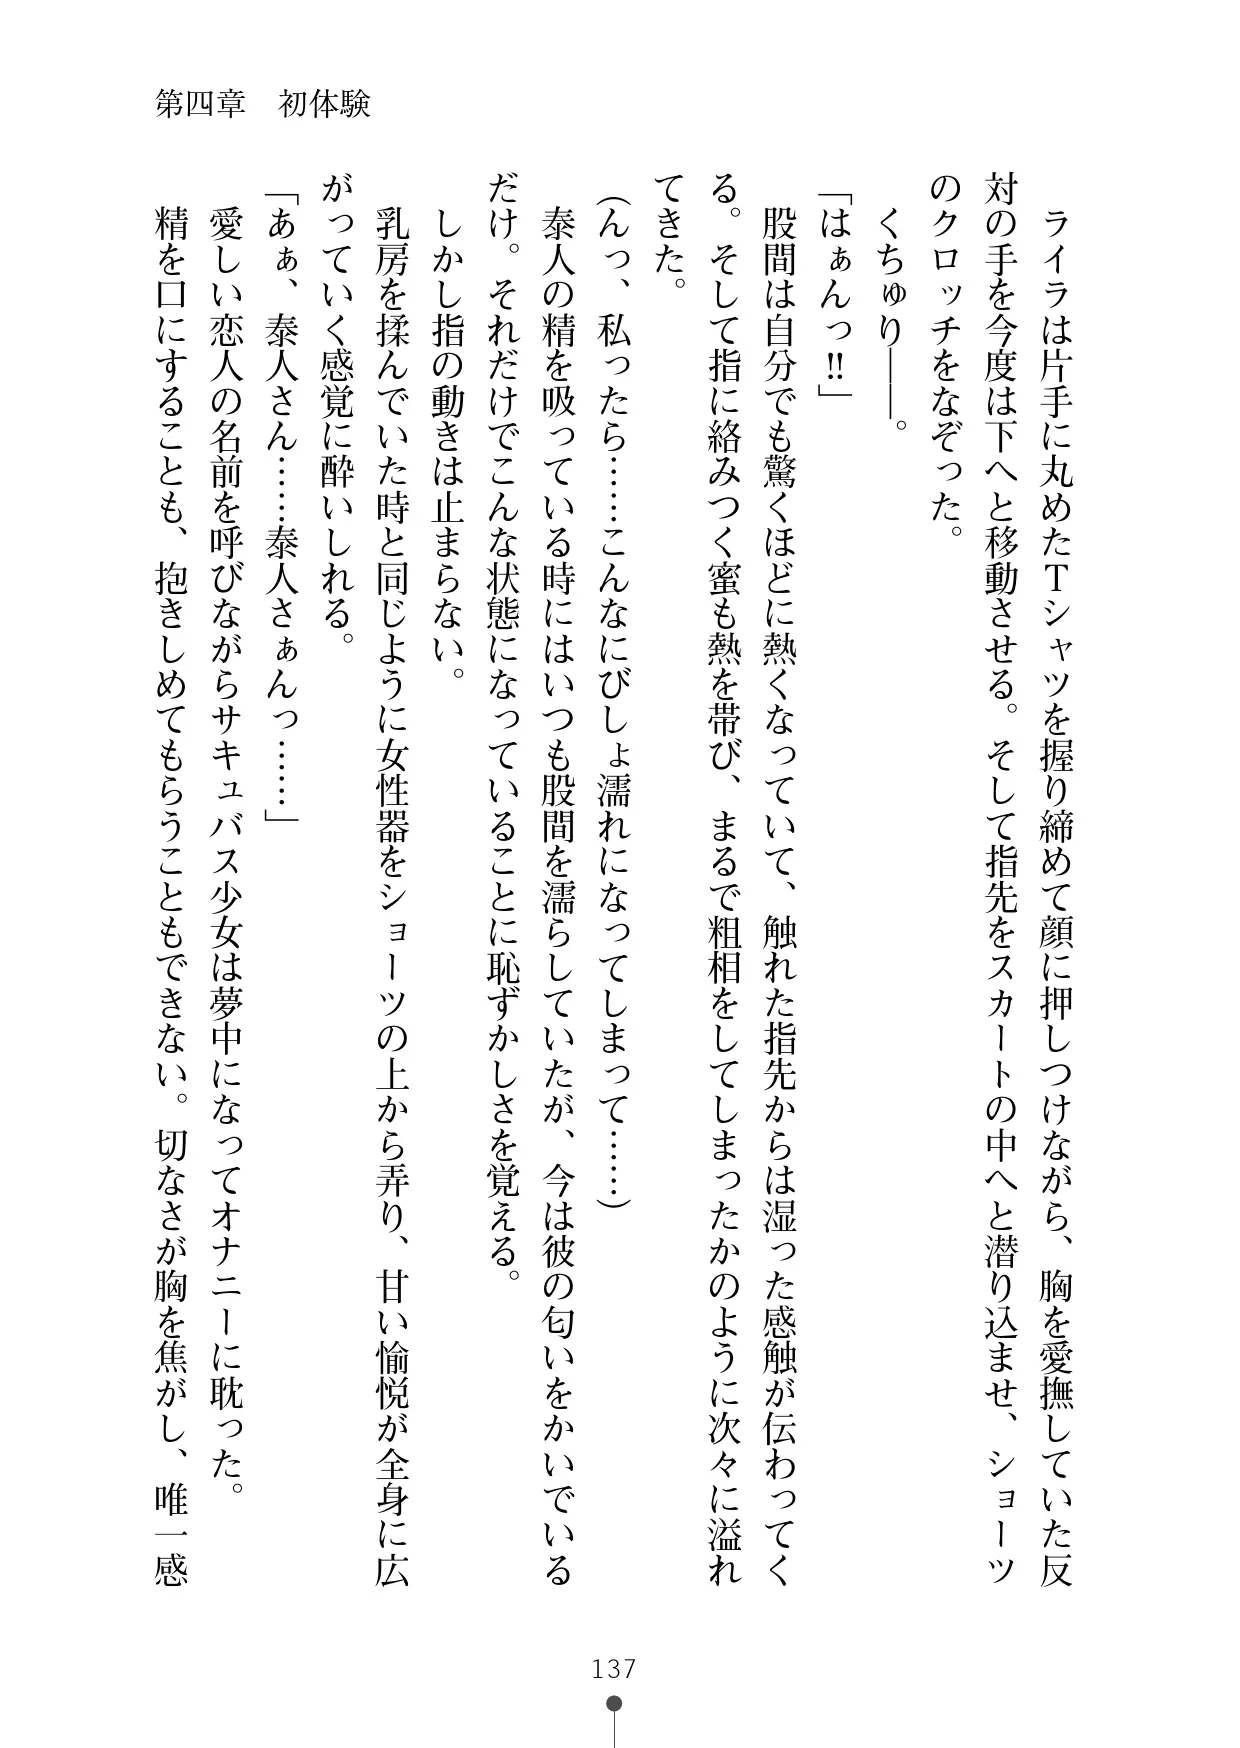 第四章　初体験
　ライラは片手に丸めたＴシャツを握り締めて顔に押しつけながら、胸を愛撫していた反
対の手を今度は下へと移動させる。そして指先をスカートの中へと潜り込ませ、ショーツ
のクロッチをなぞった。
　くちゅり――。
「はぁんっ‼」
　股間は自分でも驚くほどに熱くなっていて、触れた指先からは湿った感触が伝わってく
る。そして指に絡みつく蜜も熱を帯び、まるで粗相をしてしまったかのように次々に溢れ
てきた。
（んっ、私ったら……こんなにびしょ濡れになってしまって……）
　泰人の精を吸っている時にはいつも股間を濡らしていたが、今は彼の匂いをかいでいる
だけ。それだけでこんな状態になっていることに恥ずかしさを覚える。
　しかし指の動きは止まらない。
　乳房を揉んでいた時と同じように女性器をショーツの上から弄り、甘い愉悦が全身に広
がっていく感覚に酔いしれる。
「あぁ、泰人さん……泰人さぁんっ……」
　愛しい恋人の名前を呼びながらサキュバス少女は夢中になってオナニーに耽った。
　精を口にすることも、抱きしめてもらうこともできない。切なさが胸を焦がし、唯一感
137